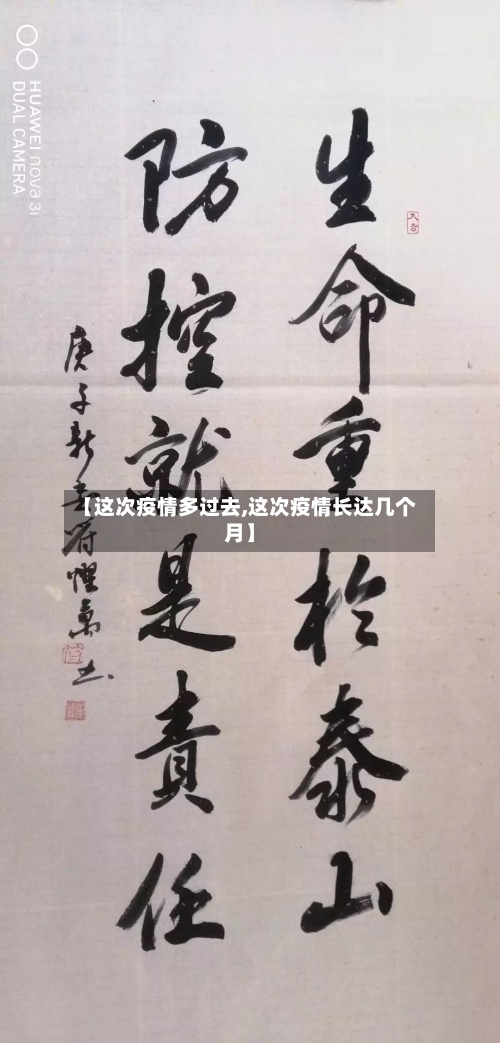 生命重於泰山
防控就是責任
庚子新春
書
【这次疫情多过去,这次疫情长达几个
月】
HUAWEI nova 3i
DUAL CAMERA